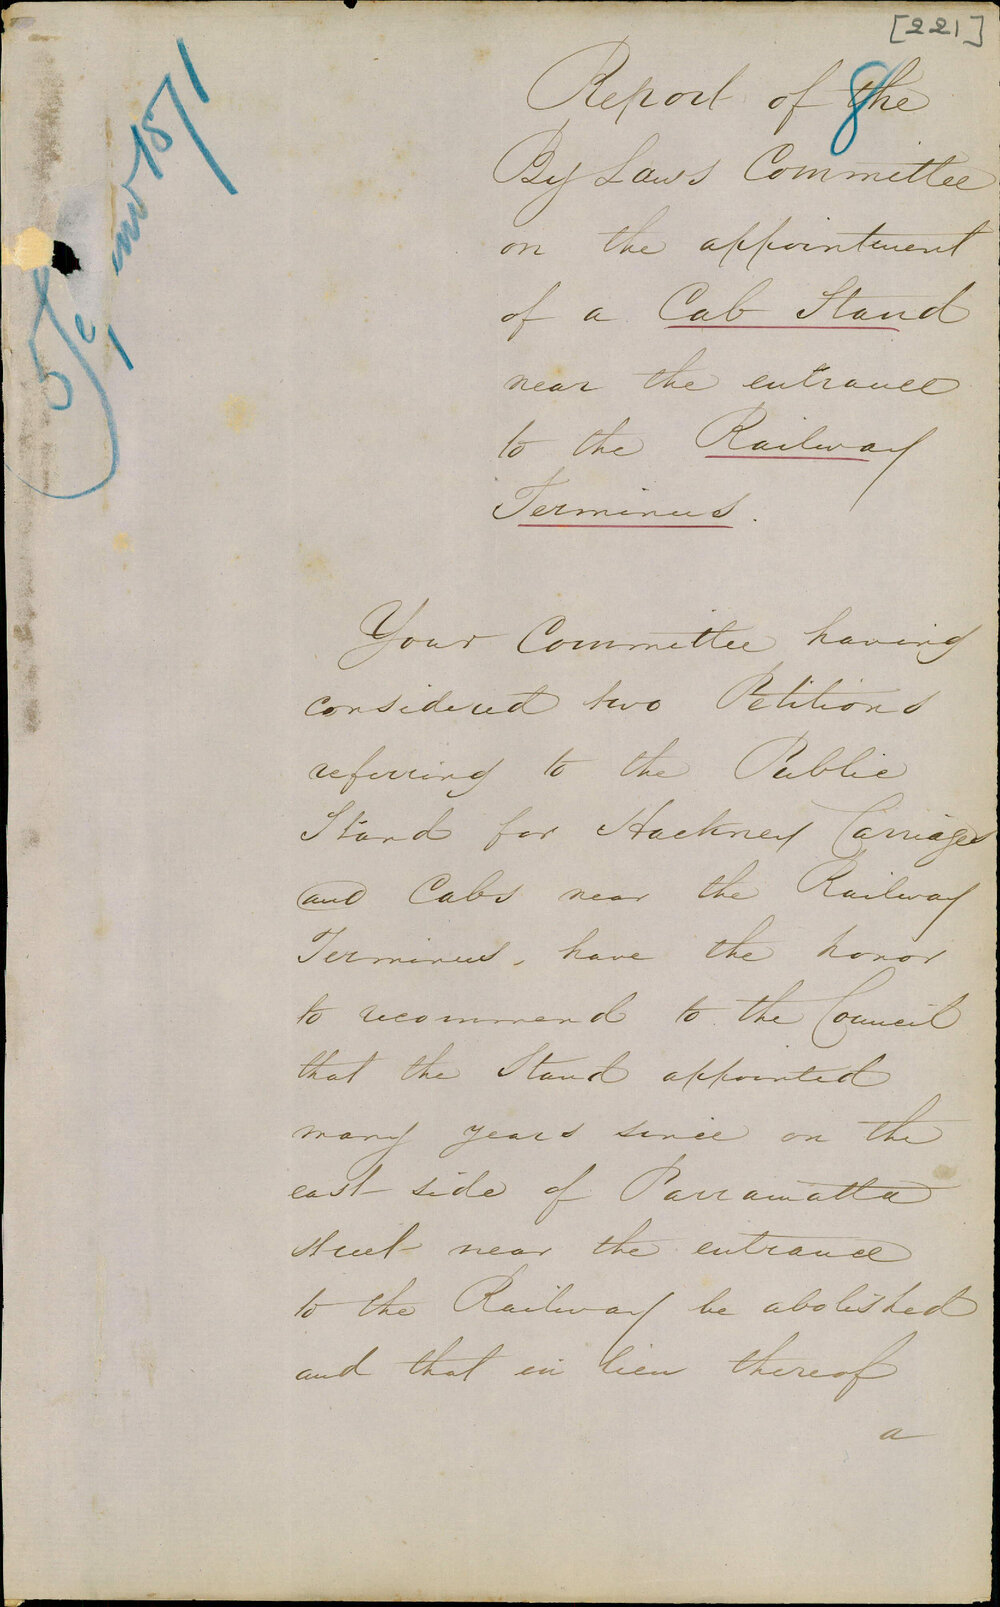 [221]
8
Report of the
By Laws Committee
on the appointment
of a Cab Stand
near the entrance
to the Railway
Terminus.
Your Committee having
considered two Petitions
referring to the Public
Stand for Hackney Carriages
and Cabs near the Railway
Terminus, have the honor
to recommend to the Council
that the Stand appointed
many years since on the
east side of Parramatta
Street near the entrance
to the Railway be abolished
and that in lieu thereof
a